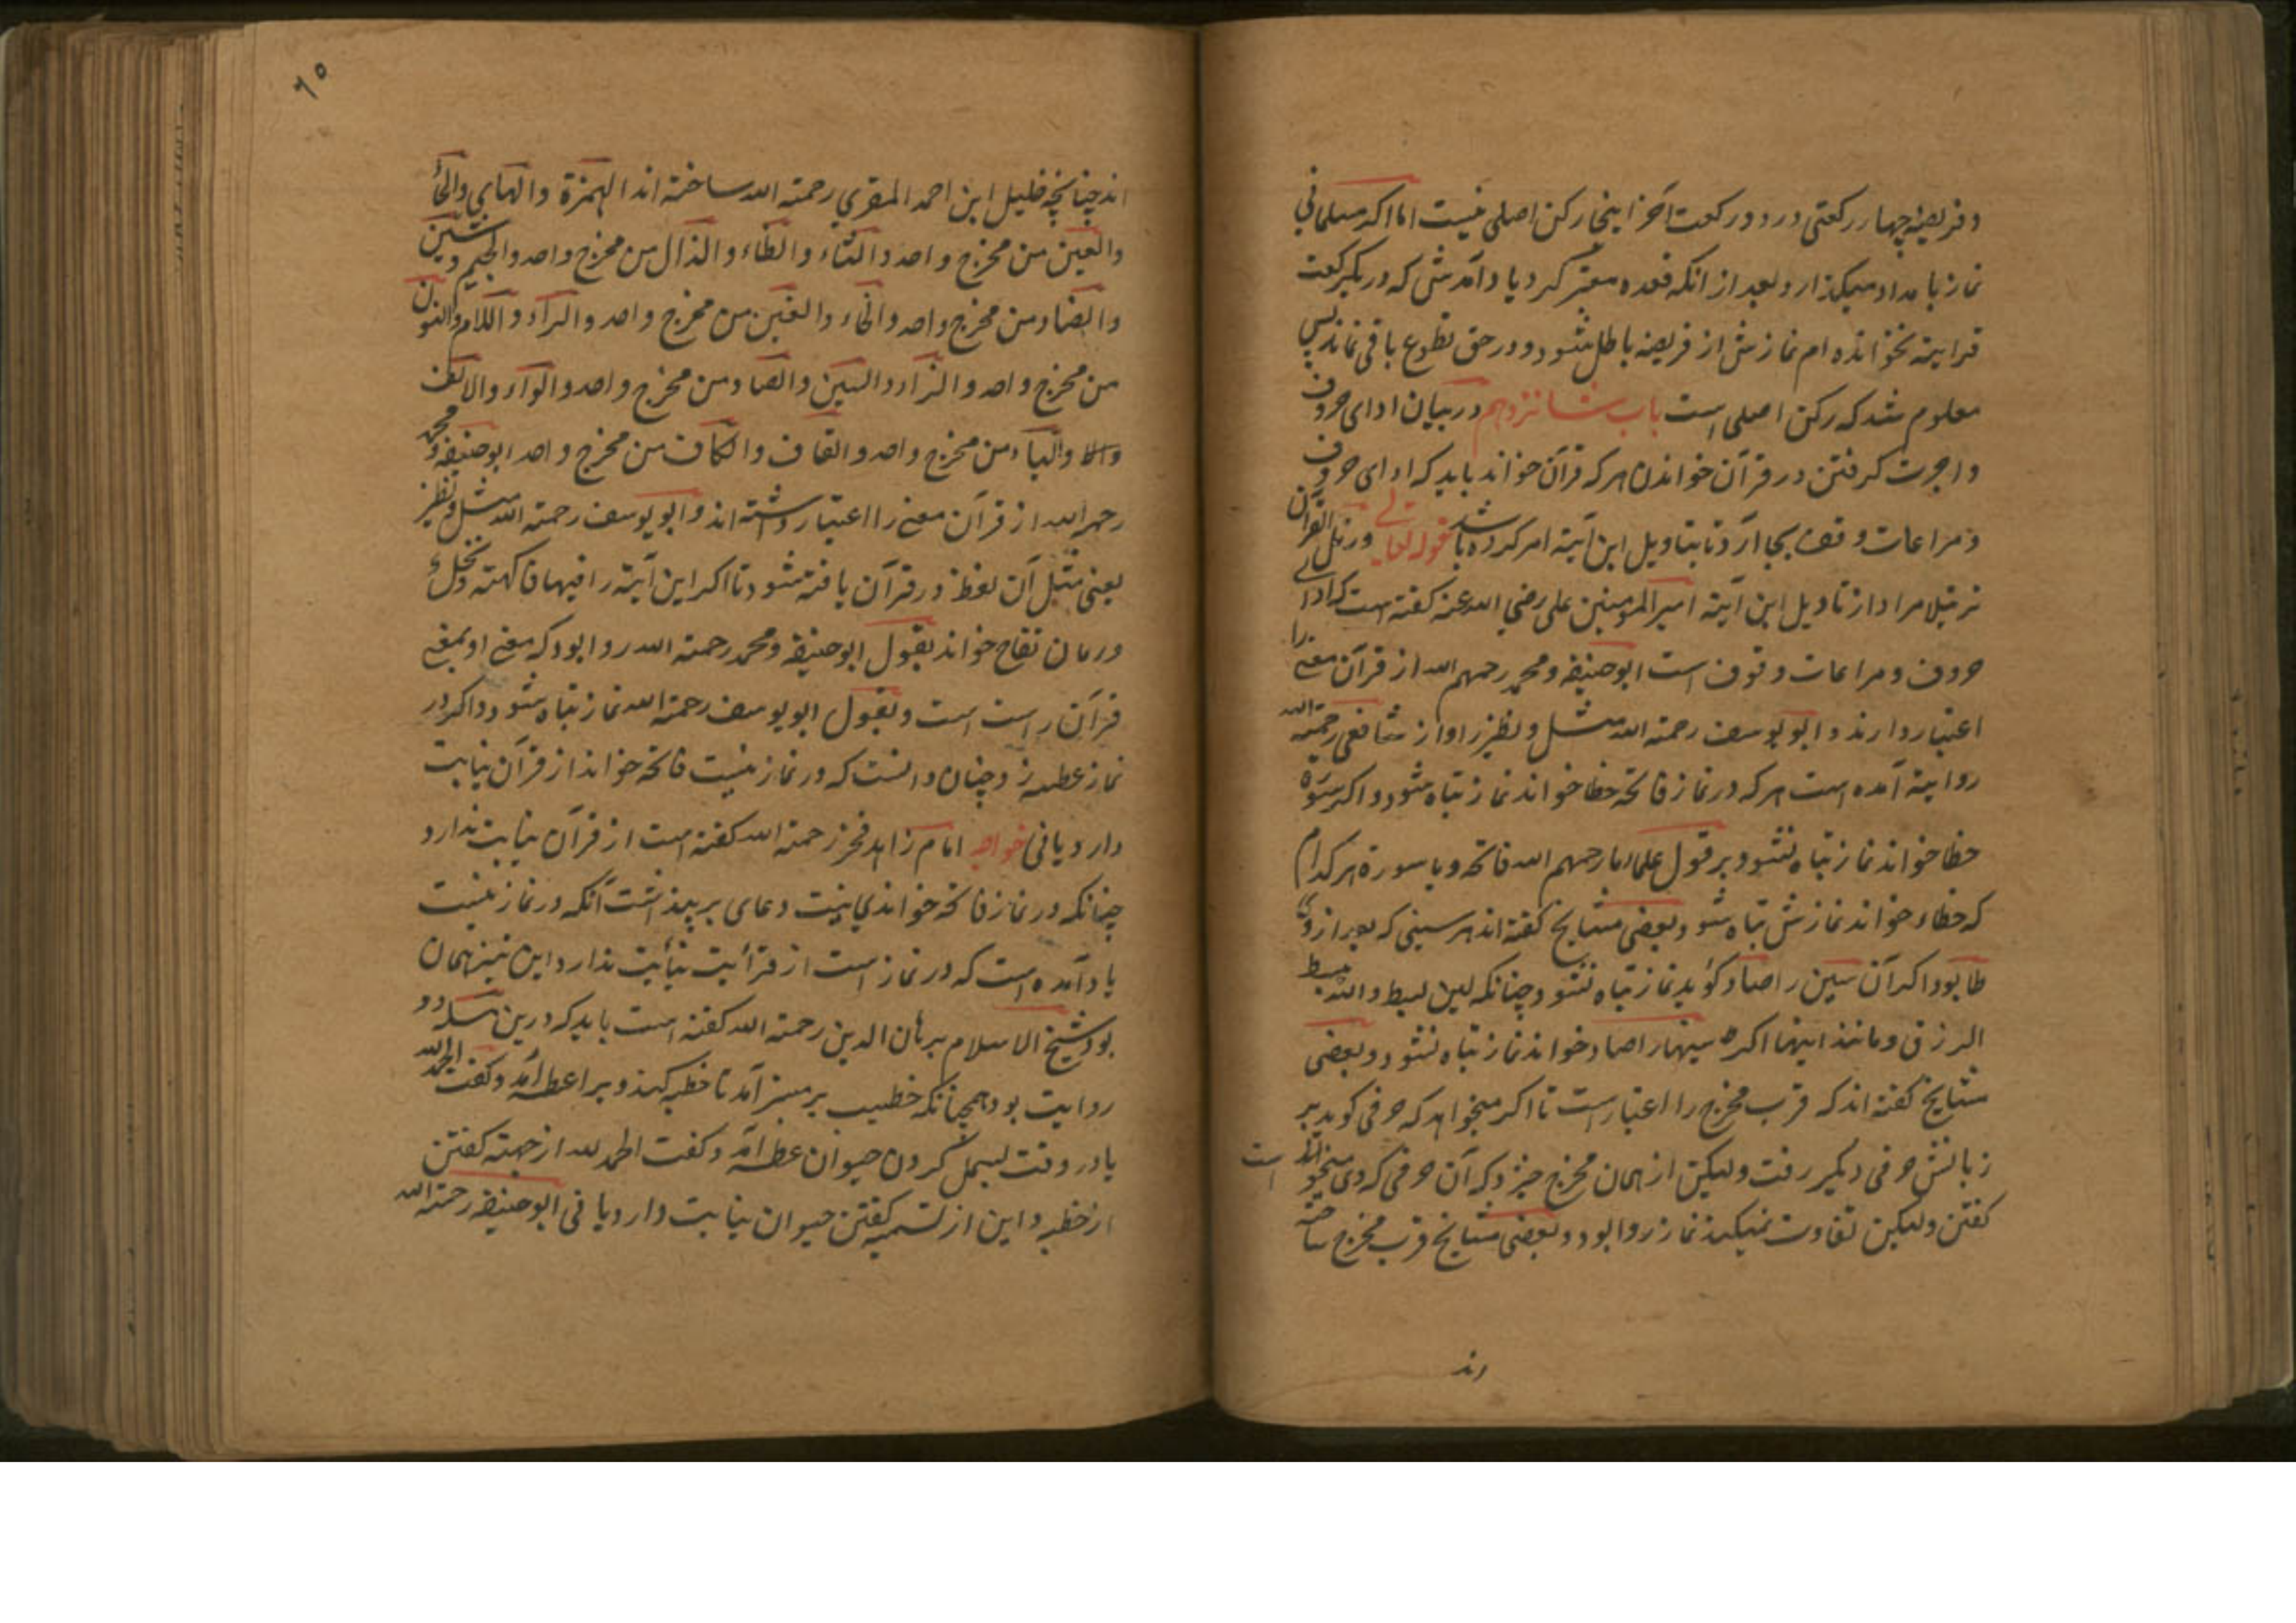 و فریضه چهار رکعتی در دو رکعت آخر اینجا رکن اصلی نیست اما اکر مسلمانی
نماز بامداد میکزارد و بعد از انکه قعده معتبر کرد یاد آمدش که در یکرکعت
قرایته نخوانده ام نمازش از فریضه باطل شود و در حق تطوع باقی نماند پس
معلوم شد که رکن اصلی است باب شانزدهم در بیان ادای حروف
و اجرت کرفتن در قرآن خواندن هر که قرآن خواند باید که ادای حروف
و مراعات وقف بجا آرد تا بتاویل این آیته امر کرده باشد قوله تعالی ورتل القرآن
ترتیلا مراد از تاویل این آیته امیر المومنین علی رضی الله عنه کفته است که ادای
حروف و مراعات وقوف است ابو حنیفه و محمد رحمهم الله از قرآن معنی را
اعتبار دارند و ابو یوسف رحمته الله مثل و نظیر را و از شافعی رحمته الله
روایته آمده است هر که در نماز فاتحه خطا خواند نماز تباه شود و اکر سوره
خطا خواند نماز تباه نشود بر قول علماء ما رحمهم الله فاتحه و یا سورة هر کدام
که خطاء خواند نمازش تباه شود و بعضی مشایخ کفته اند هر سینی که بعد از وی
طا بود اکر آن سین را صاد کوید نماز تباه نشود چنانکه لمن یبسط والله یبسط
الرزق و مانند اینها اکر سینها را صاد خواند نماز تباه نشود و بعضی
مشایخ کفته اند که قرب مخرج را اعتبار است تا اکر میخواهد که حرفی کوید بر
زبانش حرفی دیکر رفت ولیکن از همان مخرج خیزد که آن حرفی که وی میخواند است
کفتن ولیکن تفاوت نمیکند نماز روا بود و بعضی مشایخ قرب مخرج ساخته
اند
٦٥
اند چنانچه خلیل ابن احمد المقری رحمته الله ساخته اند الهمزة والهای والحاء
والعین من مخرج واحد والثاء والظاء والذال من مخرج واحد والجیم وشین
والضاد من مخرج واحد والخاء والغین من مخرج واحد والراء واللام والنون
من مخرج واحد والزاء والسین والصاد من مخرج واحد والواء والالف
والباء من مخرج واحد والقاف والکاف من مخرج واحد ابو حنیفه و محمد
رحمهم الله از قرآن معنی را اعتبار داشته اند و ابو یوسف رحمته الله مثل و نظیر
یعنی مثل آن لفظ در قرآن یافته شود تا اکر این آیته را فیها فاکهته و نخل
و رمان تفاح خواند بقول ابو حنیفه و محمد رحمته الله روا بود که معنی او بمعنی
قرآن راست است و بقول ابو یوسف رحمته الله نماز تباه شود و اکر در
نماز عطسه زد و چنان دانست که در نماز نیست فاتحه خواند از قرآن نیابت
دارد یا نی خواجه امام زاهد فخر رحمته الله کفته است از قرآن نیابت ندارد
چنانکه در نماز فاتحه خواندی بنیت دعای بر پنداشت آنکه در نماز نیست
یاد آمده است که در نماز است از قرأیت نیأبت ندارد این نیز همان
بود شیخ الاسلام برهان الدین رحمته الله کفته است باید که درین مسله دو
روایت بود همچنانکه خطیب بر منبر آمد تا خطبه کند و برا عطسه آمد و کفت الحمد لله
یا در وقت بسمل کردن حیوان عطسه آمد و کفت الحمد لله از جهته کفتن
از خطبه و این از تسمیه کفتن حیوان نیابت دارد یا نی ابو حنیفه رحمته الله